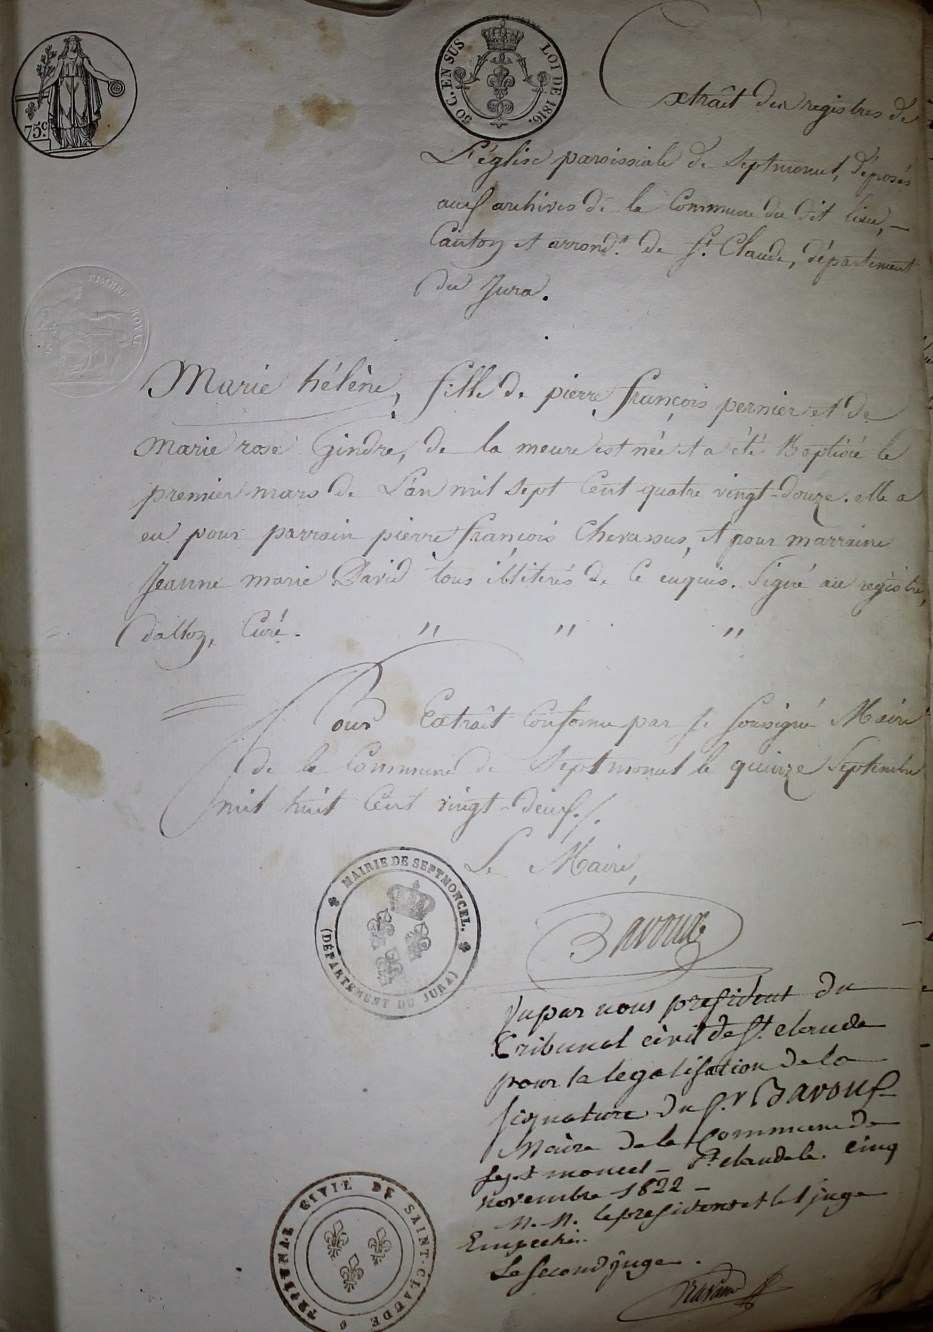 75 c.
50 C. EN SUS LOI DE 1816.
TIMBRE ROYAL
Extrait des registres de
L'église paroissiale de Septmoncel, déposés
aux archives de la Commune du dit lieu, —
Canton et arrond.t de St. Claude, département
du Jura.
Marie hélène, fille de pierre françois pernier et de
Marie rose Gindre, de la meure est née et a été Baptisée le
premier mars de L'an mil sept Cent quatre vingt-douze. elle a
eu pour parrain pierre françois Chevassus, et pour marraine
Jeanne marie David tous illiterés de Ce enquis. Signé au registre,
Dalloz, Curé. " " "
Pour Extrait Conforme par je soussigné Maire
de la Commune de Septmoncel le quinze Septembre
mil huit Cent vingt-deux./.
Le Maire,
MAIRIE DE SEPTMONCEL.
(DÉPARTEMENT DU JURA)
Bavoux
Vu par nous président du
Tribunal civil de St. claude
pour la legalisation de la
signature du S.r Bavoux
Maire de la Commune de
Septmoncel — St. claude le cinq
novembre 1822 —
M. M. le president et le 1 juge
Empechés.
Le second juge.
TRIBUNAL CIVIL DE SAINT-CLAUDE